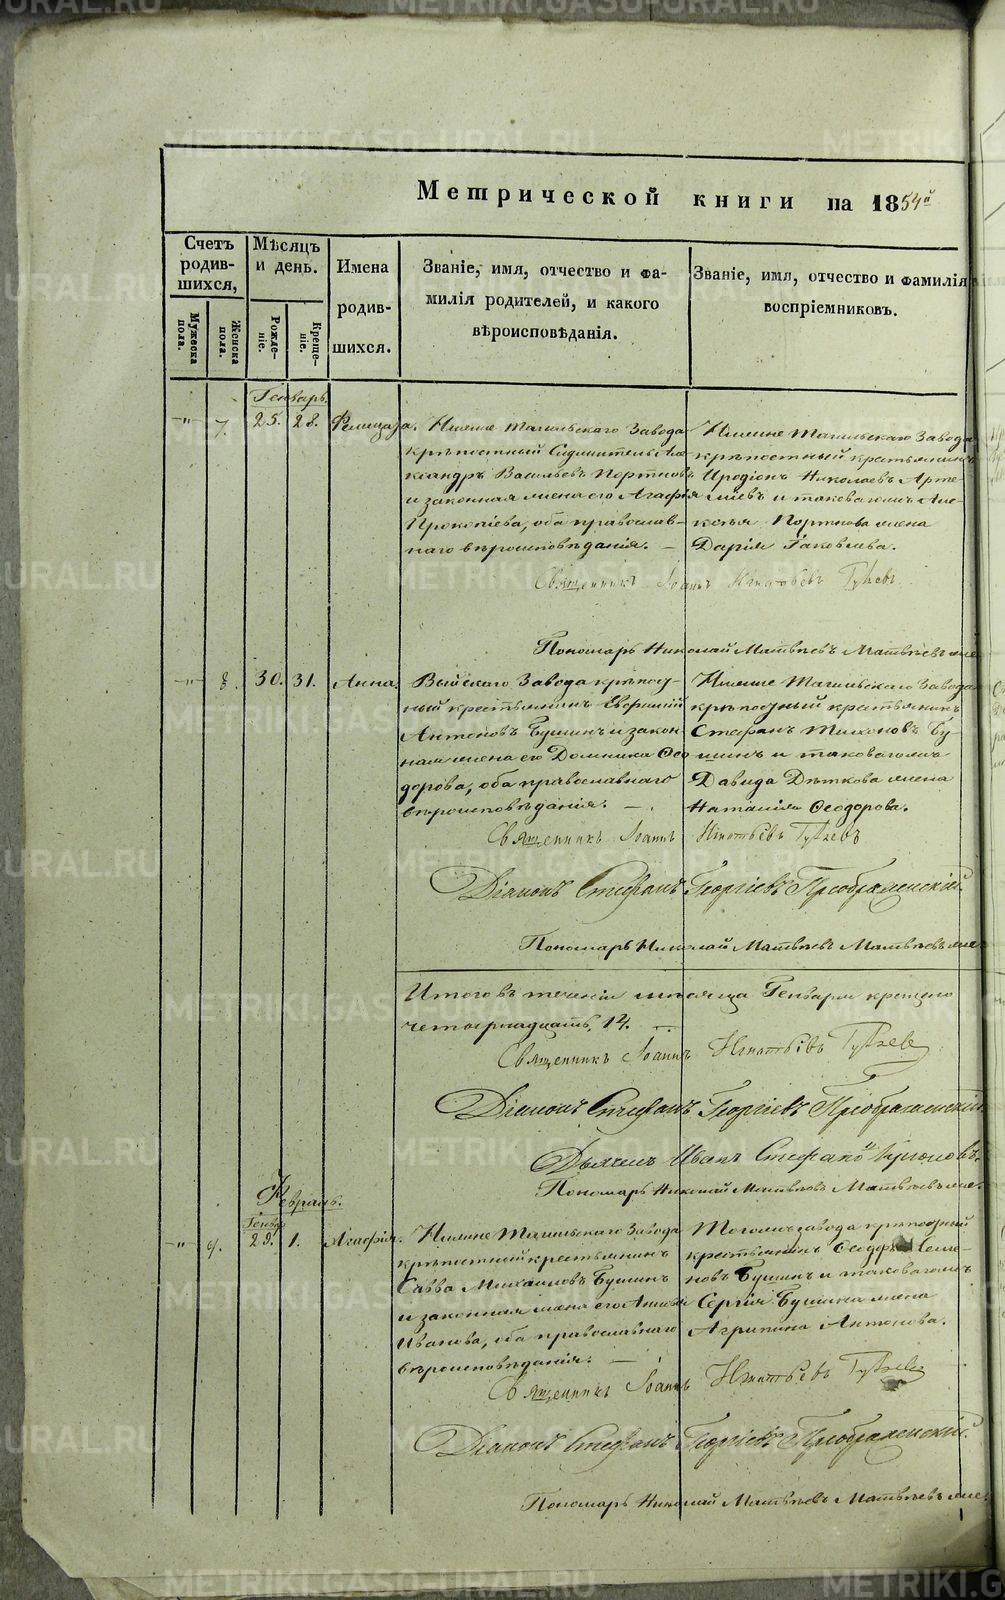 Метрической книги на 1854й
Счетъ родившихся,
Мѣсяцъ и день.
Имена родившихся.
Званіе, имя, отчество и фамилія родителей, и какого вѣроисповѣданія.
Званіе, имя, отчество и фамилія воспріемниковъ.
Мужеска пола.
Женска пола.
Рожденіе.
Крещеніе.
Генварь.
-"- 7. 25. 28.
Нижне Тагильскаго Завода
крѣпостный
ксандръ Васильевъ Портновъ
и законная жена его Агафія
Прокопіева, оба православ-
наго вѣроисповѣданія. —
Нижне Тагильскаго Завода
крѣпостный крестьянинъ
Иродіонъ Николаевъ Арте-
міевъ и таковагожъ Але-
ксѣя Портнова жена
Дарія Іаковлева.
Священникъ Іоаннъ Игнатьевъ
Пономарь Николай Матвѣевъ Матвѣевъ
-"- 8. 30. 31. Анна.
Выйскаго Завода крѣпост-
ный крестьянинъ Евфимій
Антоновъ Бушинъ и закон-
ная жена его Домника Ѳео
дорова, оба православнаго
вѣроисповѣданія. —.
Нижне Тагильскаго Завода
крѣпостный крестьянинъ
Стефанъ Тихоновъ Бу-
шинъ и таковагожъ
Давида Дѣткова жена
Наталія Ѳеодорова.
Священникъ Іоаннъ Игнатьевъ
Діаконъ Стефанъ Георгіевъ Преображенскій.
Пономарь Николай Матвѣевъ Матвѣевъ
Итого въ теченіи мѣсяца Генваря крещено
четырнадцать, 14.
Священникъ Іоаннъ Игнатьевъ
Діаконъ Стефанъ Георгіевъ Преображенскій.
Дьячекъ Иванъ Стефановъ
Пономарь Николай Матвѣевъ Матвѣевъ
Февраль.
Генварь
-"- 9. 29. 1. Агафія.
Нижне Тагильскаго Завода
крѣпостный крестьянинъ
Савва Михаиловъ Бушинъ
и законная жена его
Иванова, оба православнаго
вѣроисповѣданія. —
Тогожъ завода крѣпостный
крестьянинъ Ѳеодоръ Семе-
новъ Бушинъ и таковагожъ
Сергія Бушина жена
Агрипина Антонова.
Священникъ Іоаннъ Игнатьевъ
Діаконъ Стефанъ Георгіевъ Преображенскій.
Пономарь Николай Матвѣевъ Матвѣевъ
METRIKI.GASO-URAL.RU